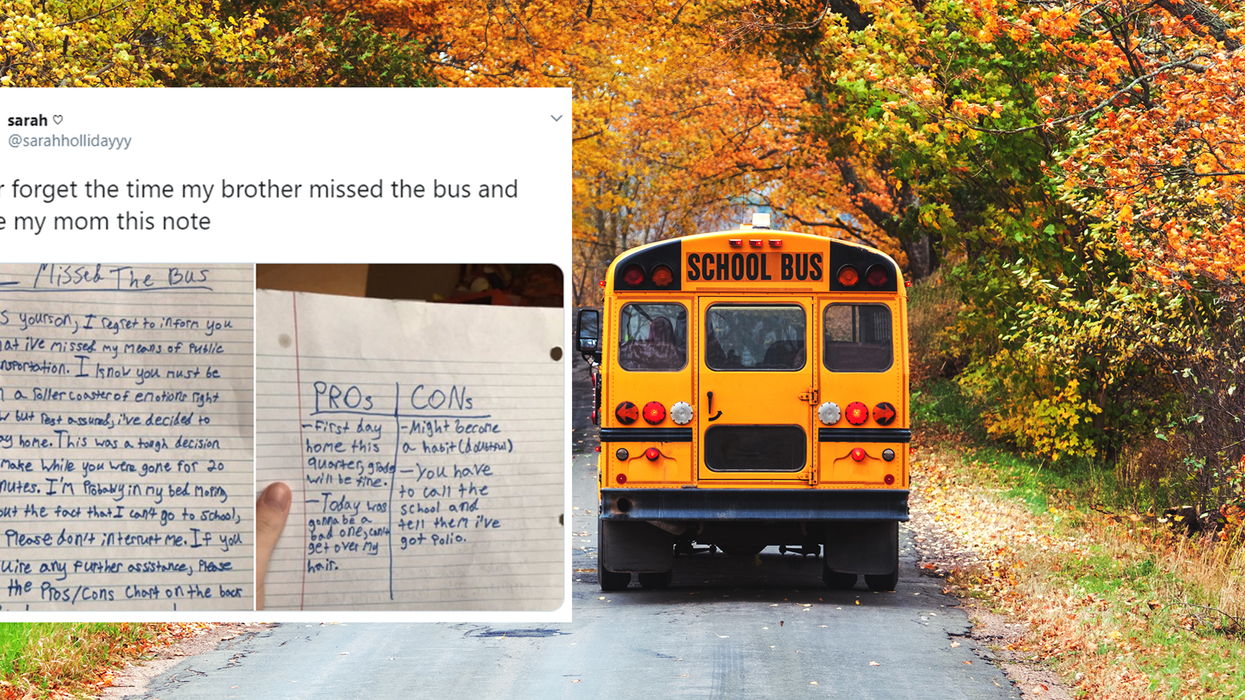 sarah ♡
@sarahhollidayyy
r forget the time my brother missed the bus and
e my mom this note
Missed The Bus
s yourson, I regret to inform you
hat i've missed my means of Public
nsportation. I know you must be
n a rollercoaster of emotions right
w but rest assured, i've decided to
ay home. This was a tough decision
make while you were gone for 20
nutes. I'm Probaly in my bed Moping
out the fact that I can't go to school,
Please don't interrupt me. If you
uire any further assistance, Please
the Pros/Cons Chart on the back
PROs
-First day
home this
quarter, grades
will be fine.
-Today was
gonna be a
bad one, can't
get over my
hair.
CONs
-Might become
a habit (doubtful)
-you have
to call the
school and
tell them i've
got Polio.
SCHOOL BUS